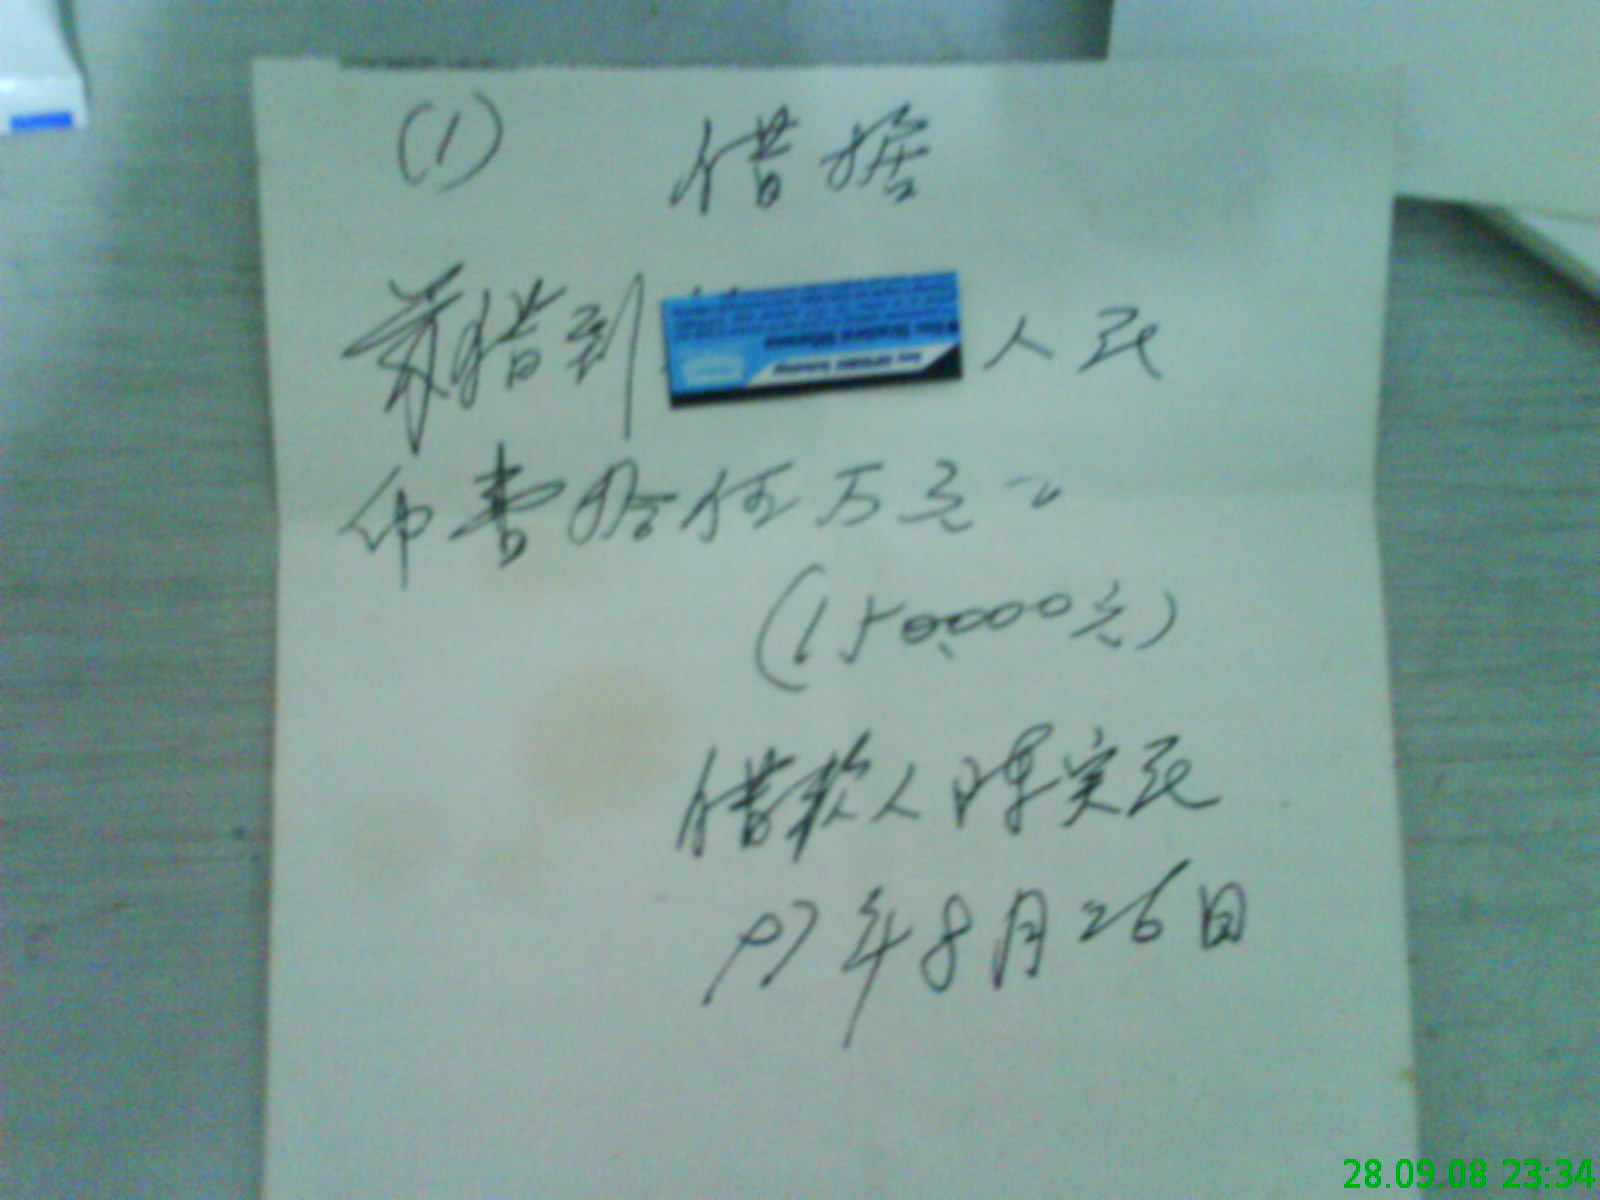 (1) 借据
兹借到 人民
币壹拾伍万元
(150,000元)
借款人陈实民
97年8月26日
28.09.08 23:34